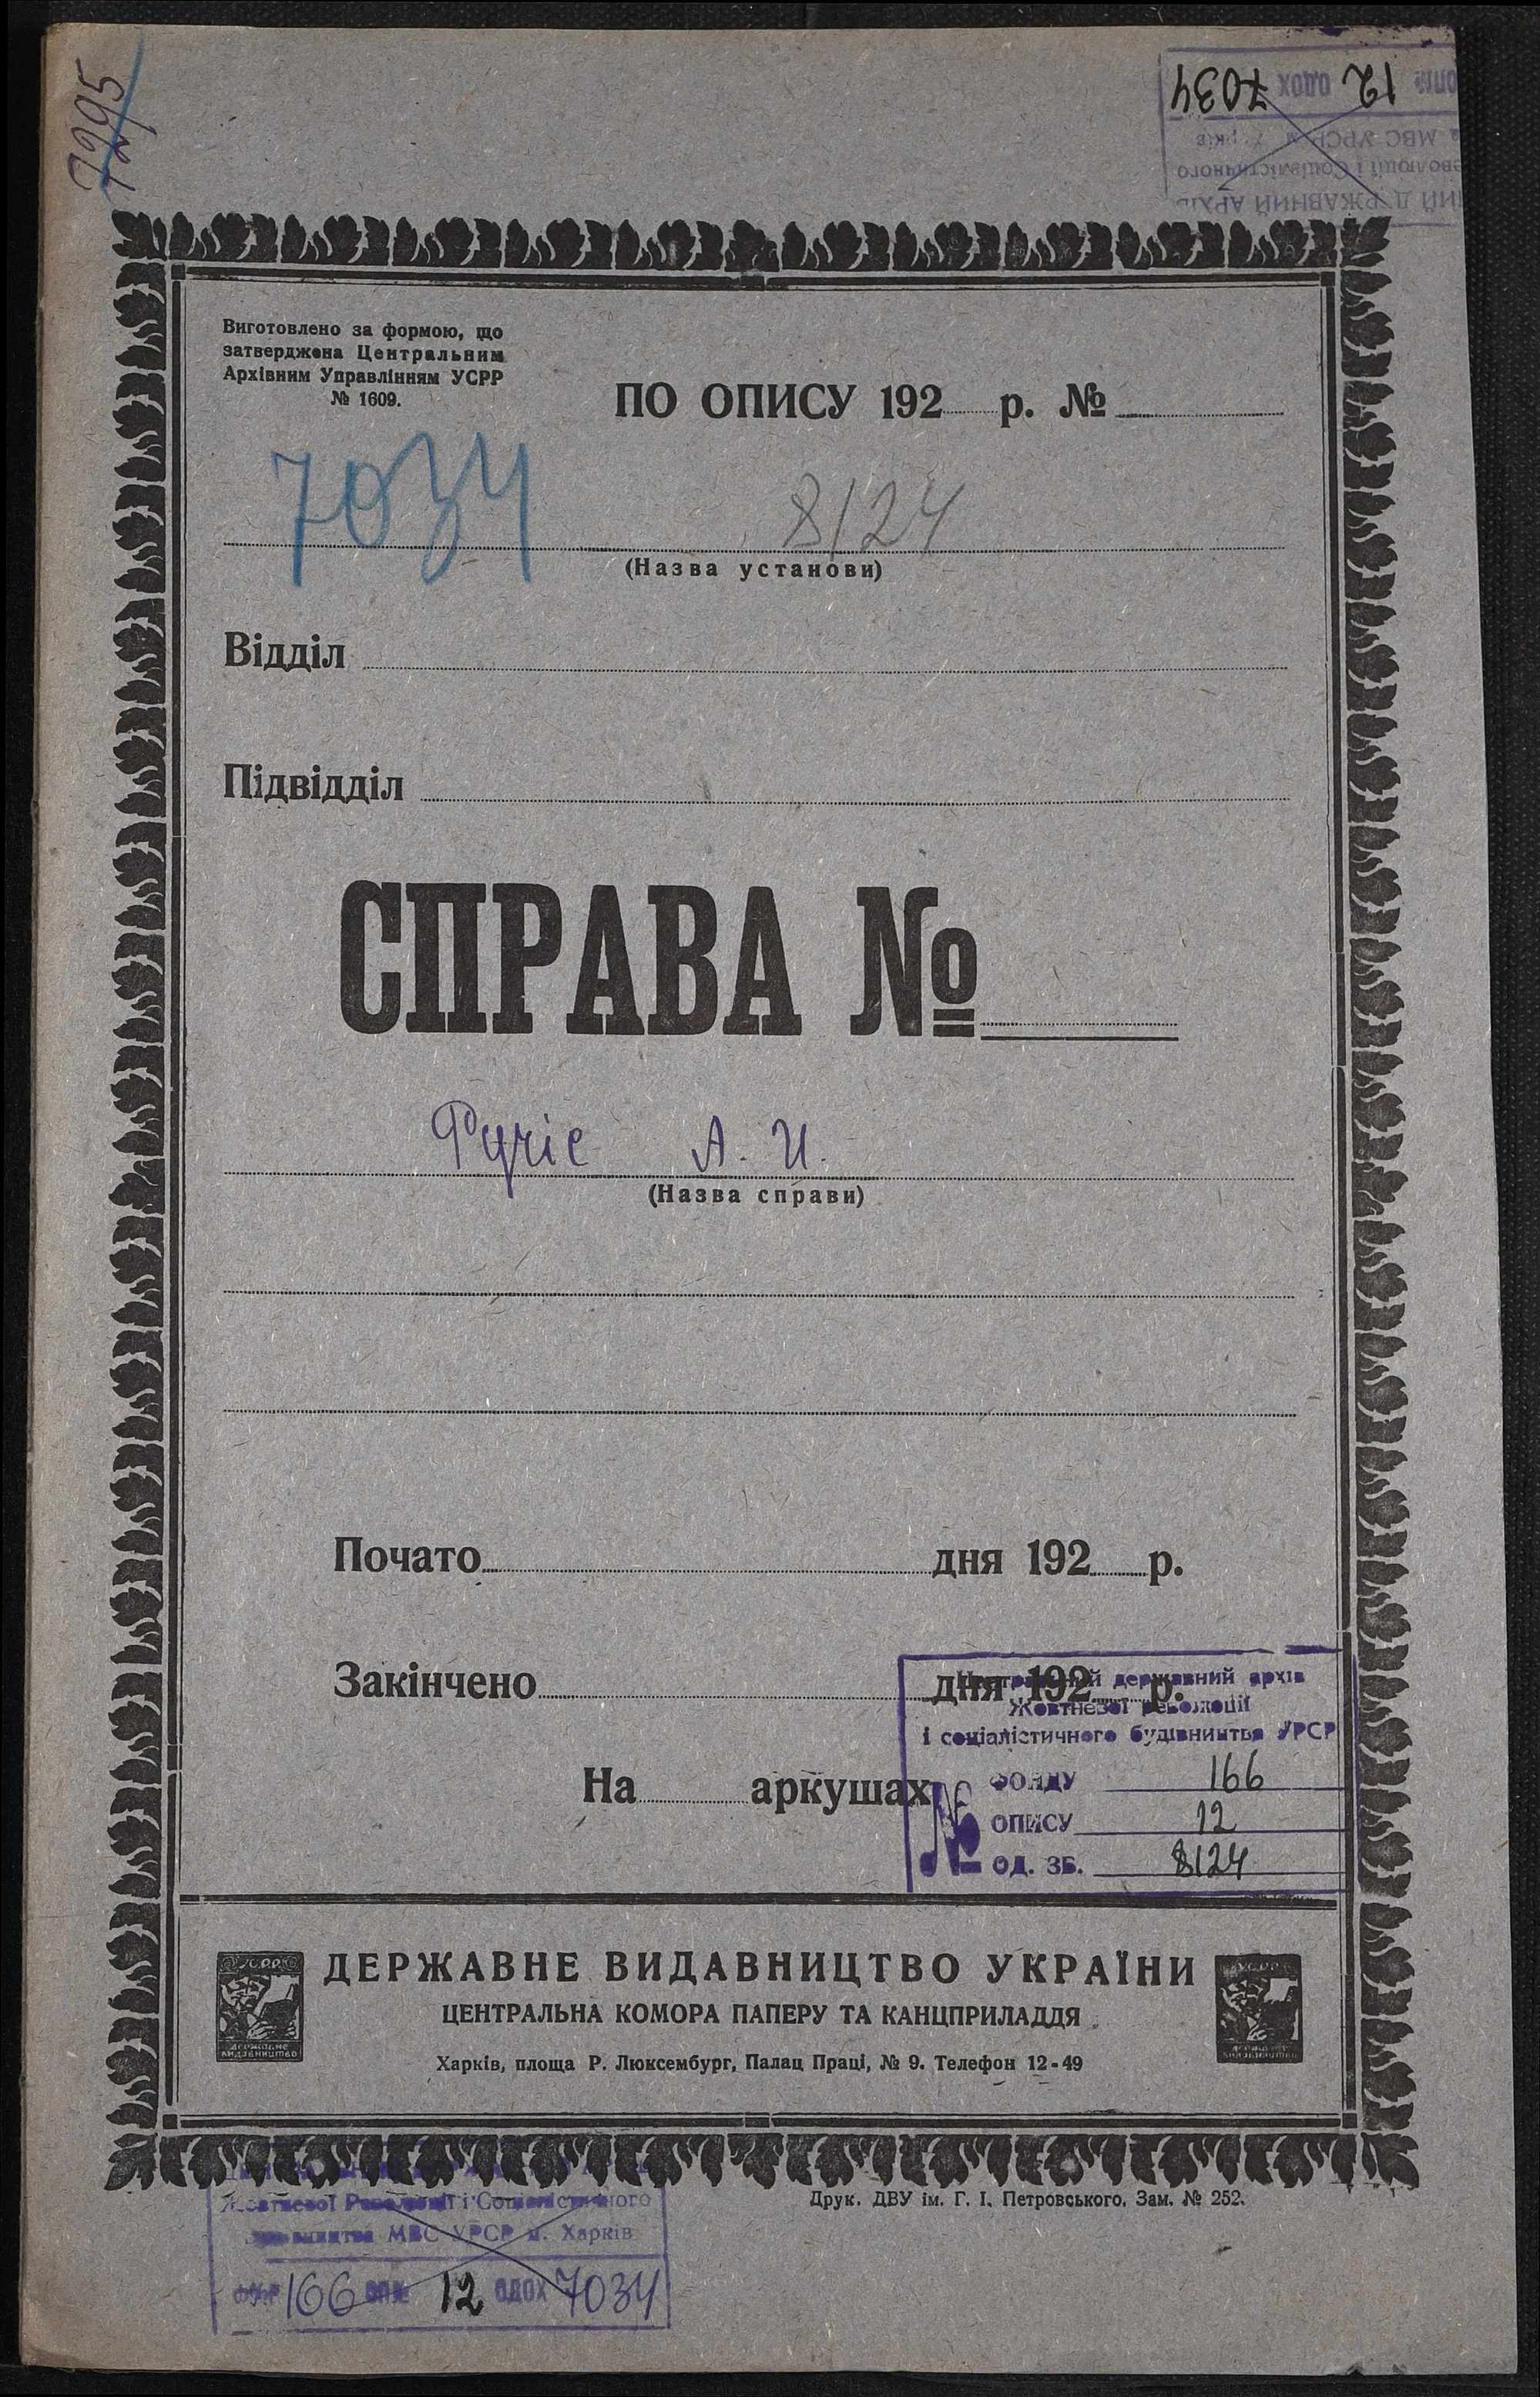 7295
ОПИС 12 ОДОХ 7034
МВС УРСР м. Харків
революції і Соціалістичного
ДЕРЖАВНИЙ АРХІВ
Виготовлено за формою, що
затверджена Центральним
Архівним Управлінням УСРР
№ 1609.
ПО ОПИСУ 192 р. №
7034 8124
(Назва установи)
Відділ
Підвідділ
СПРАВА №
А. И.
(Назва справи)
Почато дня 192 р.
Закінчено дня 192 р.
Центральний державний архів
Жовтневої революції
і соціалістичного будівництва УРСР
На аркушах
№ ФОНДУ 166
ОПИСУ 12
ОД. ЗБ. 8124
ДЕРЖАВНЕ ВИДАВНИЦТВО УКРАЇНИ
ЦЕНТРАЛЬНА КОМОРА ПАПЕРУ ТА КАНЦПРИЛАДДЯ
Харків, площа Р. Люксембург, Палац Праці, № 9. Телефон 12-49
Друк. ДВУ ім. Г. І. Петровського. Зам. № 252.
Жовтневої Революції і Соціалістичного
будівництва МВС УРСР м. Харків
166 12 ОДОХ 7034